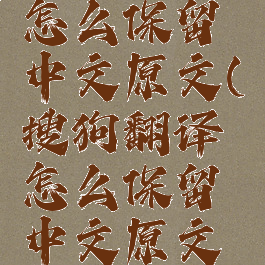 怎么保留
中文原文(
搜狗翻译
怎么保留
中文原文